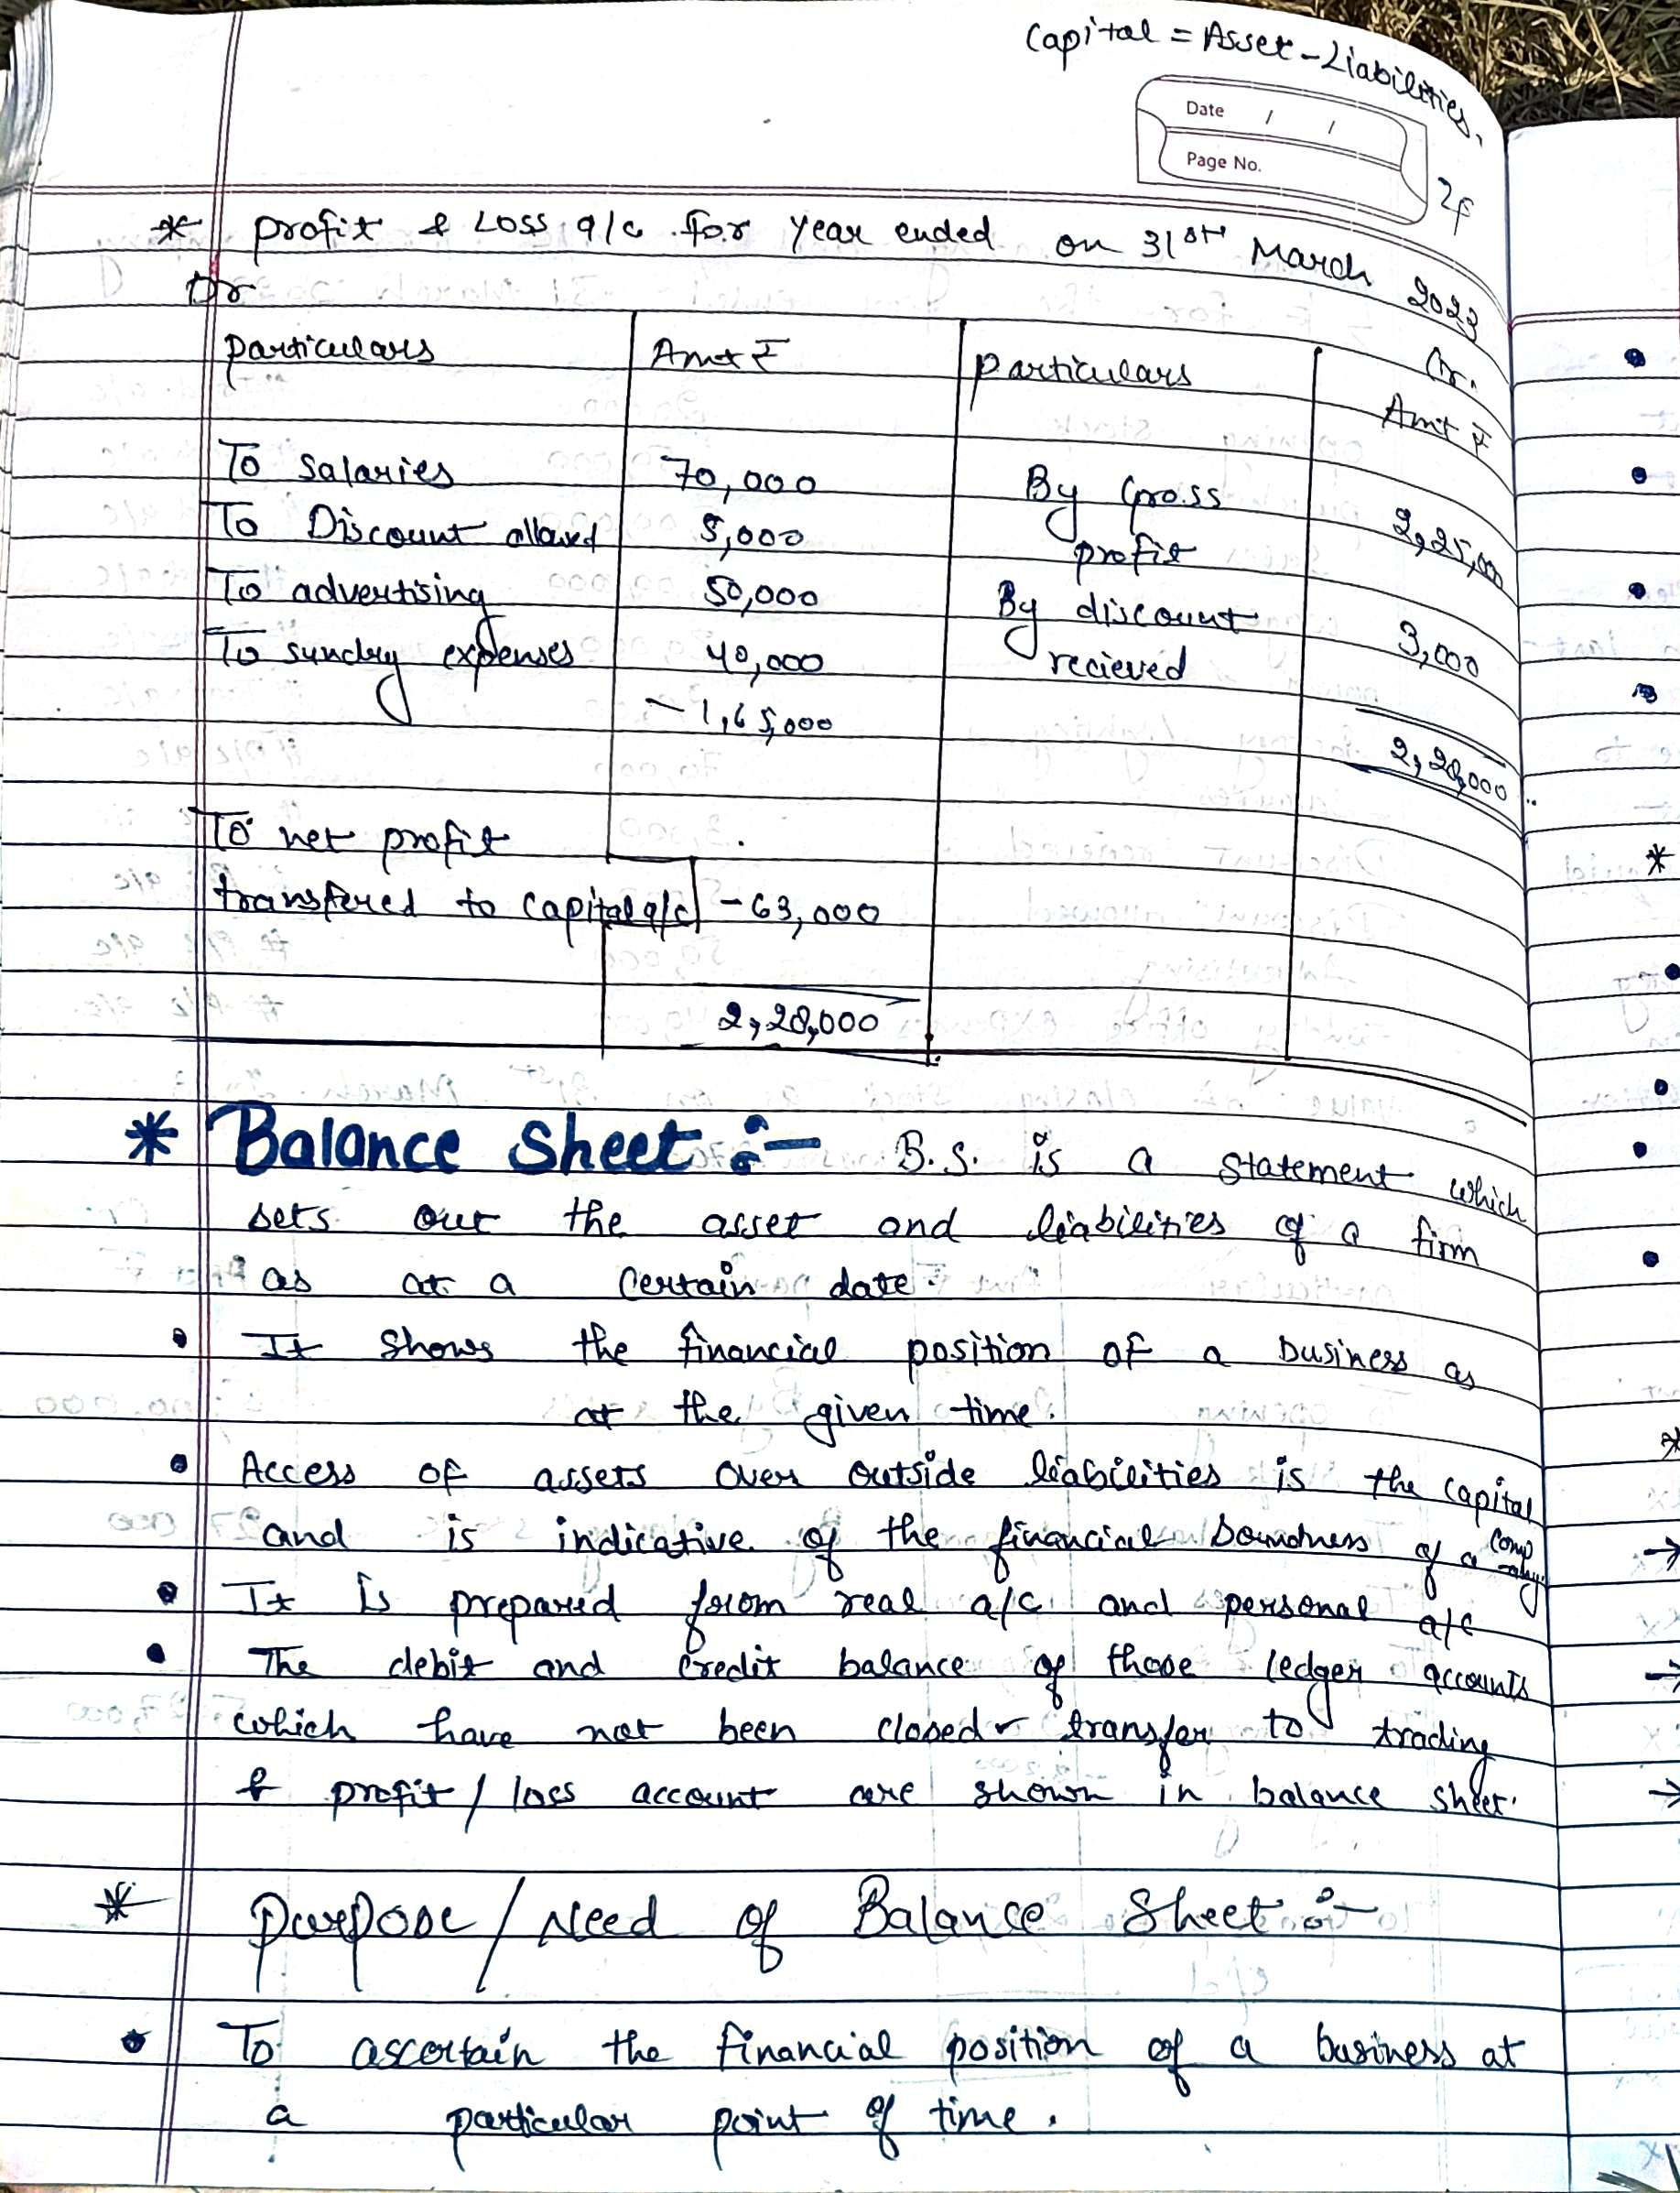 Capital = Asset - Liabilities,
Date / /
Page No.
* profit & Loss a/c for year ended on 31st March 2023
Dr Cr.
particulars Amt ₹ particulars Amt ₹
To salaries 70,000 By Gross profit 2,25,000
To Discount allowed 5,000
To advertising 50,000 By discount recieved 3,000
To sundry expenses 40,000
- 1,65,000
2,28,000
To net profit
transfered to capital a/c - 63,000
2,28,000
* Balance Sheet :- B.S. is a statement which
sets out the asset and liabilities of a firm
as at a certain date.
• It shows the financial position of a business as
at the given time.
• Access of assets over outside liabilities is the capital
and is indicative of the financial soundness of a company.
• It is prepared from real a/c and personal a/c
• The debit and credit balance of those ledger accounts
which have not been closed or transfer to trading
& profit / loss account are shown in balance sheet.
* Purpose / Need of Balance Sheet :-
• To ascertain the financial position of a business at
a particular point of time.